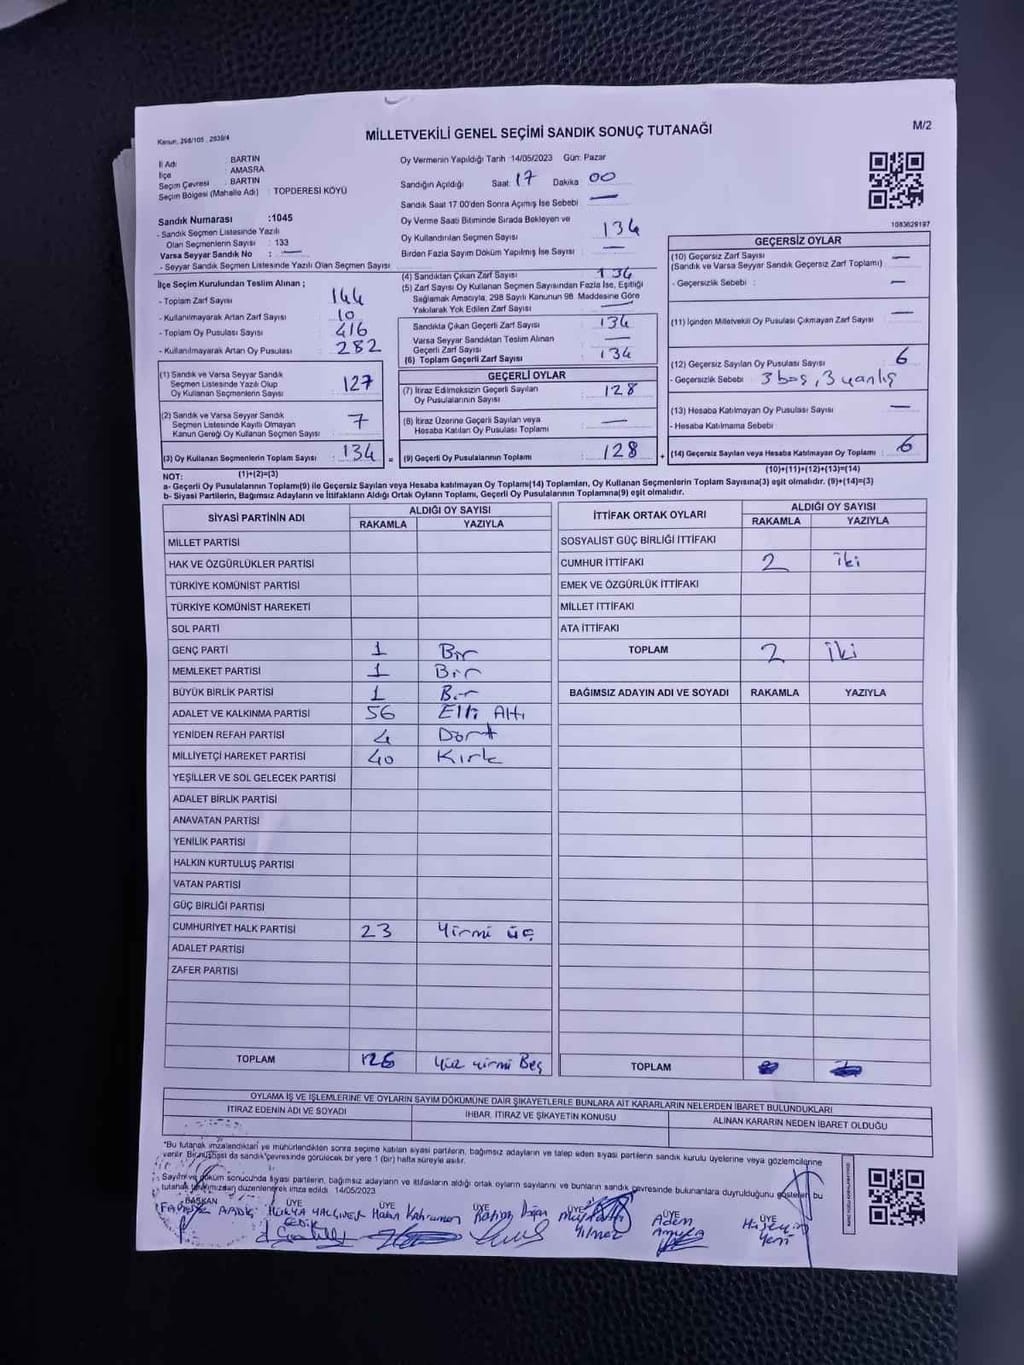 Kanun: 298/105 , 2839/4
MİLLETVEKİLİ GENEL SEÇİMİ SANDIK SONUÇ TUTANAĞI
M/2
İl Adı : BARTIN
İlçe : AMASRA
Seçim Çevresi : BARTIN
Seçim Bölgesi (Mahalle Adı) : TOPDERESİ KÖYÜ
Sandık Numarası :1045
- Sandık Seçmen Listesinde Yazılı
Olan Seçmenlerin Sayısı : 133
Varsa Seyyar Sandık No : —
- Seyyar Sandık Seçmen Listesinde Yazılı Olan Seçmen Sayısı
İlçe Seçim Kurulundan Teslim Alınan ;
- Toplam Zarf Sayısı 144
- Kullanılmayarak Artan Zarf Sayısı 10
- Toplam Oy Pusulası Sayısı 416
- Kullanılmayarak Artan Oy Pusulası 282
(1) Sandık ve Varsa Seyyar Sandık
Seçmen Listesinde Yazılı Olup
Oy Kullanan Seçmenlerin Sayısı 127
(2) Sandık ve Varsa Seyyar Sandık
Seçmen Listesinde Kayıtlı Olmayan
Kanun Gereği Oy Kullanan Seçmen Sayısı 7
(3) Oy Kullanan Seçmenlerin Toplam Sayısı 134 =
Oy Vermenin Yapıldığı Tarih :14/05/2023 Gün: Pazar
Sandığın Açıldığı Saat: 17 Dakika 00
Sandık Saat 17.00'den Sonra Açılmış İse Sebebi —
Oy Verme Saati Bitiminde Sırada Bekleyen ve
Oy Kullandırılan Seçmen Sayısı 134
Birden Fazla Sayım Döküm Yapılmış İse Sayısı —
(4) Sandıktan Çıkan Zarf Sayısı 134
(5) Zarf Sayısı Oy Kullanan Seçmen Sayısından Fazla İse, Eşitliği
Sağlamak Amacıyla, 298 Sayılı Kanunun 98. Maddesine Göre
Yakılarak Yok Edilen Zarf Sayısı —
Sandıkta Çıkan Geçerli Zarf Sayısı 134
Varsa Seyyar Sandıktan Teslim Alınan
Geçerli Zarf Sayısı —
(6) Toplam Geçerli Zarf Sayısı 134
GEÇERLİ OYLAR
(7) İtiraz Edilmeksizin Geçerli Sayılan
Oy Pusulalarının Sayısı 128
(8) İtiraz Üzerine Geçerli Sayılan veya
Hesaba Katılan Oy Pusulası Toplamı —
(9) Geçerli Oy Pusulalarının Toplamı 128 +
1083629197
GEÇERSİZ OYLAR
(10) Geçersiz Zarf Sayısı —
(Sandık ve Varsa Seyyar Sandık Geçersiz Zarf Toplamı)
- Geçersizlik Sebebi : —
(11) İçinden Milletvekili Oy Pusulası Çıkmayan Zarf Sayısı —
(12) Geçersiz Sayılan Oy Pusulası Sayısı 6
- Geçersizlik Sebebi 3 boş, 3 yanlış
(13) Hesaba Katılmayan Oy Pusulası Sayısı —
- Hesaba Katılmama Sebebi
(14) Geçersiz Sayılan veya Hesaba Katılmayan Oy Toplamı 6
NOT: (1)+(2)=(3) (10)+(11)+(12)+(13)=(14)
a- Geçerli Oy Pusulalarının Toplamı(9) ile Geçersiz Sayılan veya Hesaba katılmayan Oy Toplamı(14) Toplamları, Oy Kullanan Seçmenlerin Toplam Sayısına(3) eşit olmalıdır. (9)+(14)=(3)
b- Siyasi Partilerin, Bağımsız Adayların ve İttifakların Aldığı Ortak Oyların Toplamı, Geçerli Oy Pusulalarının Toplamına(9) eşit olmalıdır.
SİYASİ PARTİNİN ADI ALDIĞI OY SAYISI
RAKAMLA YAZIYLA
MİLLET PARTİSİ
HAK VE ÖZGÜRLÜKLER PARTİSİ
TÜRKİYE KOMÜNİST PARTİSİ
TÜRKİYE KOMÜNİST HAREKETİ
SOL PARTİ
GENÇ PARTİ 1 Bir
MEMLEKET PARTİSİ 1 Bir
BÜYÜK BİRLİK PARTİSİ 1 Bir
ADALET VE KALKINMA PARTİSİ 56 Elli Altı
YENİDEN REFAH PARTİSİ 4 Dört
MİLLİYETÇİ HAREKET PARTİSİ 40 Kırk
YEŞİLLER VE SOL GELECEK PARTİSİ
ADALET BİRLİK PARTİSİ
ANAVATAN PARTİSİ
YENİLİK PARTİSİ
HALKIN KURTULUŞ PARTİSİ
VATAN PARTİSİ
GÜÇ BİRLİĞİ PARTİSİ
CUMHURİYET HALK PARTİSİ 23 Yirmi üç
ADALET PARTİSİ
ZAFER PARTİSİ
TOPLAM 126 Yüz yirmi Beş
İTTİFAK ORTAK OYLARI ALDIĞI OY SAYISI
RAKAMLA YAZIYLA
SOSYALİST GÜÇ BİRLİĞİ İTTİFAKI
CUMHUR İTTİFAKI 2 iki
EMEK VE ÖZGÜRLÜK İTTİFAKI
MİLLET İTTİFAKI
ATA İTTİFAKI
TOPLAM 2 iki
BAĞIMSIZ ADAYIN ADI VE SOYADI RAKAMLA YAZIYLA
TOPLAM
OYLAMA İŞ VE İŞLEMLERİNE VE OYLARIN SAYIM DÖKÜMÜNE DAİR ŞİKAYETLERLE BUNLARA AİT KARARLARIN NELERDEN İBARET BULUNDUKLARI
İTİRAZ EDENİN ADI VE SOYADI İHBAR, İTİRAZ VE ŞİKAYETİN KONUSU ALINAN KARARIN NEDEN İBARET OLDUĞU
*Bu tutanak imzalandıktan ve mühürlendikten sonra seçime katılan siyasi partilerin, bağımsız adayların ve talep eden siyasi partilerin sandık kurulu üyelerine veya gözlemcilerine
verilir. Bir nüshası da sandık çevresinde görülecek bir yere 1 (bir) hafta süreyle asılır.
Sayım ve döküm sonucunda siyasi partilerin, bağımsız adayların ve ittifakların aldığı ortak oyların sayılarını ve bunların sandık çevresinde bulunanlara duyrulduğunu gösteren bu
tutanak tarafımızdan düzenlenerek imza edildi. 14/05/2023
BAŞKAN ÜYE ÜYE ÜYE ÜYE ÜYE ÜYE
Hakan Kahraman Rahim Doğan
Yılmaz Adem Hüseyin
Yeni